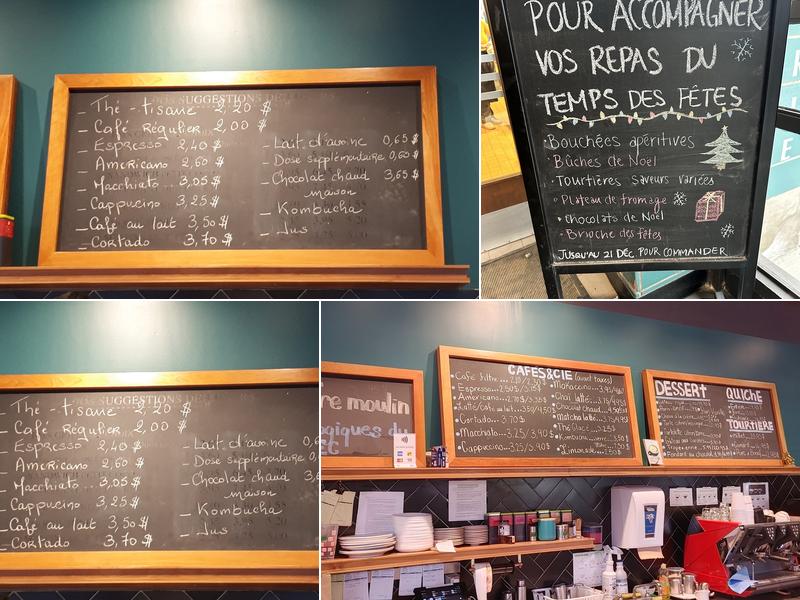 SUGGESTIONS DE
_ Thé - tisane 2,20 $
_ Café Régulier 2,00 $
_ Espresso 2,40 $
_ Americano 2,60 $
_ Macchiato .. 3,05 $
_ Cappucino 3,25 $
_ Café au lait 3,50 $
_ Cortado 3,70 $
_ Lait d'avoine 0,65 $
_ Dose supplémentaire 0,60 $
_ Chocolat chaud 3,65 $
maison
_ Kombucha
_ Jus
POUR ACCOMPAGNER
VOS REPAS DU
TEMPS DES FÊTES
• Bouchées apéritives
• Bûches de Noël
• Tourtières saveurs variées
• Plateau de fromage
• Chocolats de Noël
• Brioche des fêtes
JUSQU'AU 21 DÉC POUR COMMANDER
SUGGESTIONS DE
_ Thé - tisane 2,20 $
_ Café Régulier 2,00 $
_ Espresso 2,40 $
_ Americano 2,60 $
_ Macchiato .. 3,05 $
_ Cappucino 3,25 $
_ Café au lait 3,50 $
_ Cortado 3,70 $
_ Lait d'avoine 0,6
_ Dose supplémentaire 0,
_ Chocolat chaud 3,6
maison
_ Kombucha
_ Jus
re moulin
ogiques du
CAFÉS&CIE (avant taxes)
• Café filtre
• Espresso
• Americano
• Cortado .. 3.70 $
• Macchiato
• Cappuccino
• Mokaccino
• Chaï latté
• Chocolat chaud
• Matcha latté
• Thé Glacé
• Kombucha
• Limonade
DESSERT
QUICHE
TOURTIÈRE